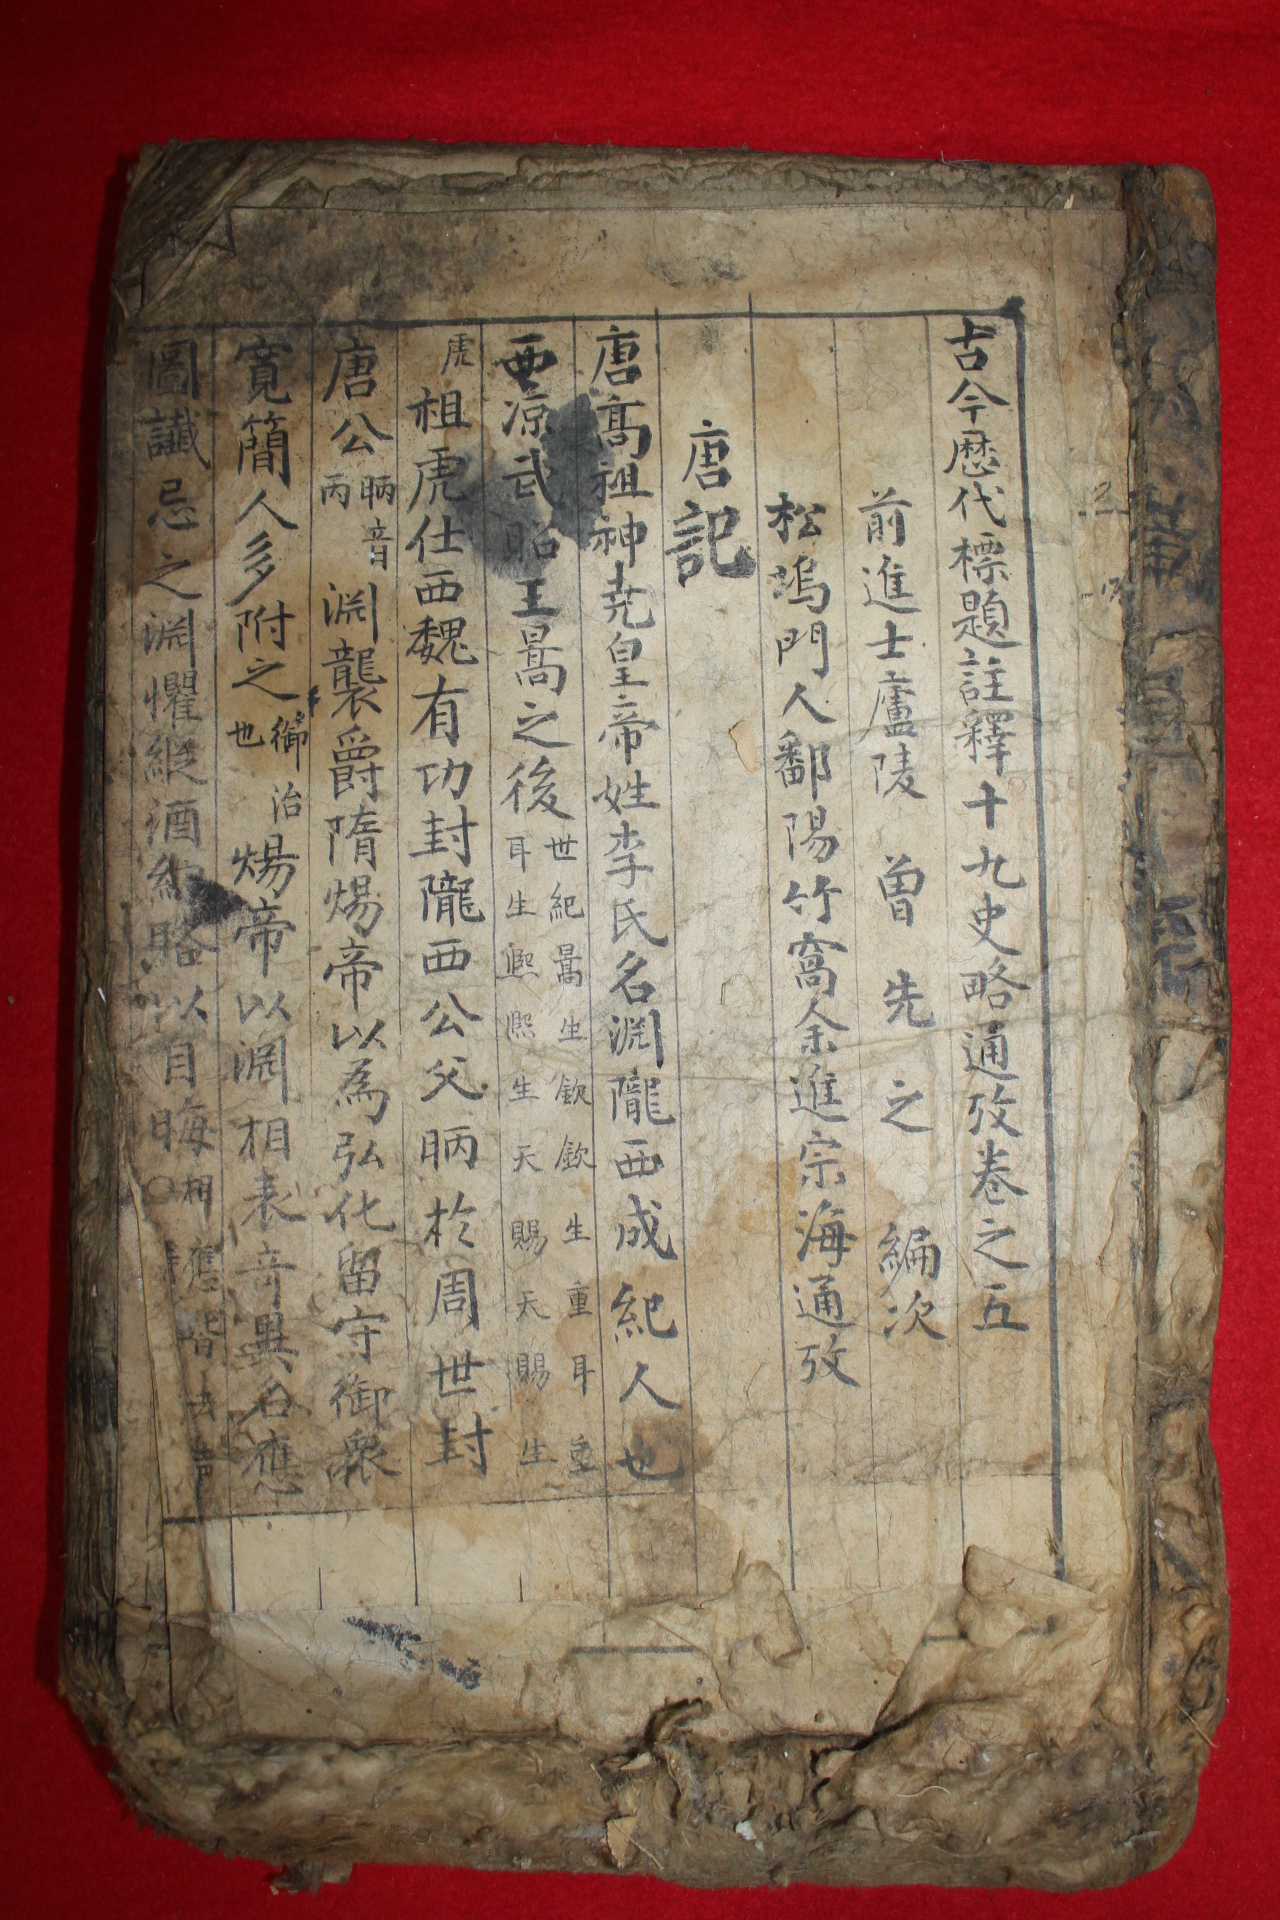 古今歷代標題註釋十九史略通攷卷之五
前進士廬陵 曾 先 之 編次
松塢門人鄱陽竹窩余進宗海通攷
唐記
唐髙祖神尭皇帝姓李氏名淵隴西成紀人也
西凉武昭王暠之後世紀暠生歆歆生重耳重
耳生熙熙生天賜天賜生
虎祖虎仕西魏有功封隴西公父昞於周世封
唐公昞音丙淵襲爵隋煬帝以為弘化留守御衆
寬簡人多附之御治也煬帝以淵相表竒異名應
圖讖忌之淵懼縱酒納賂以自晦相應皆去聲